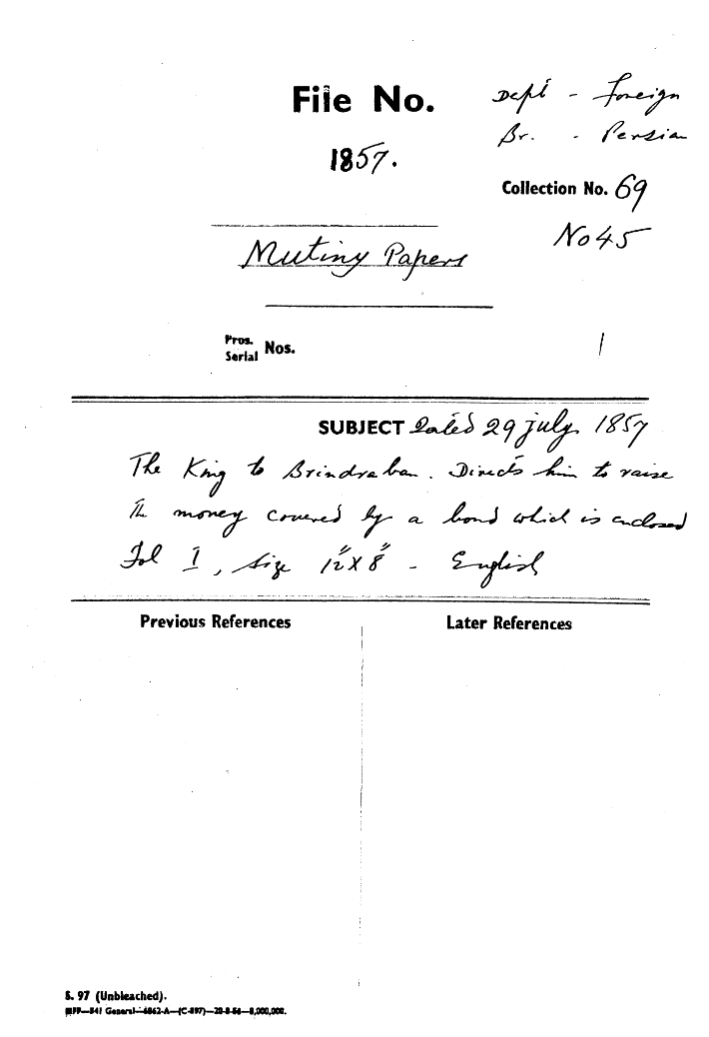 File No.
Dept - Foreign
Br. - Persian
1857.
Collection No. 69
No 45
Mutiny Papers
Pros.
Serial Nos.
1
SUBJECT Dated 29 July. 1857
The King to Brindraban. Directs him to raise
the money covered by a bond which is enclosed
Fol I, size 12" X 8" - English
Previous References
Later References
S. 97 (Unbleached).
MFP—841 General—6862-A—(C-897)—20-8-56—8,000,000.